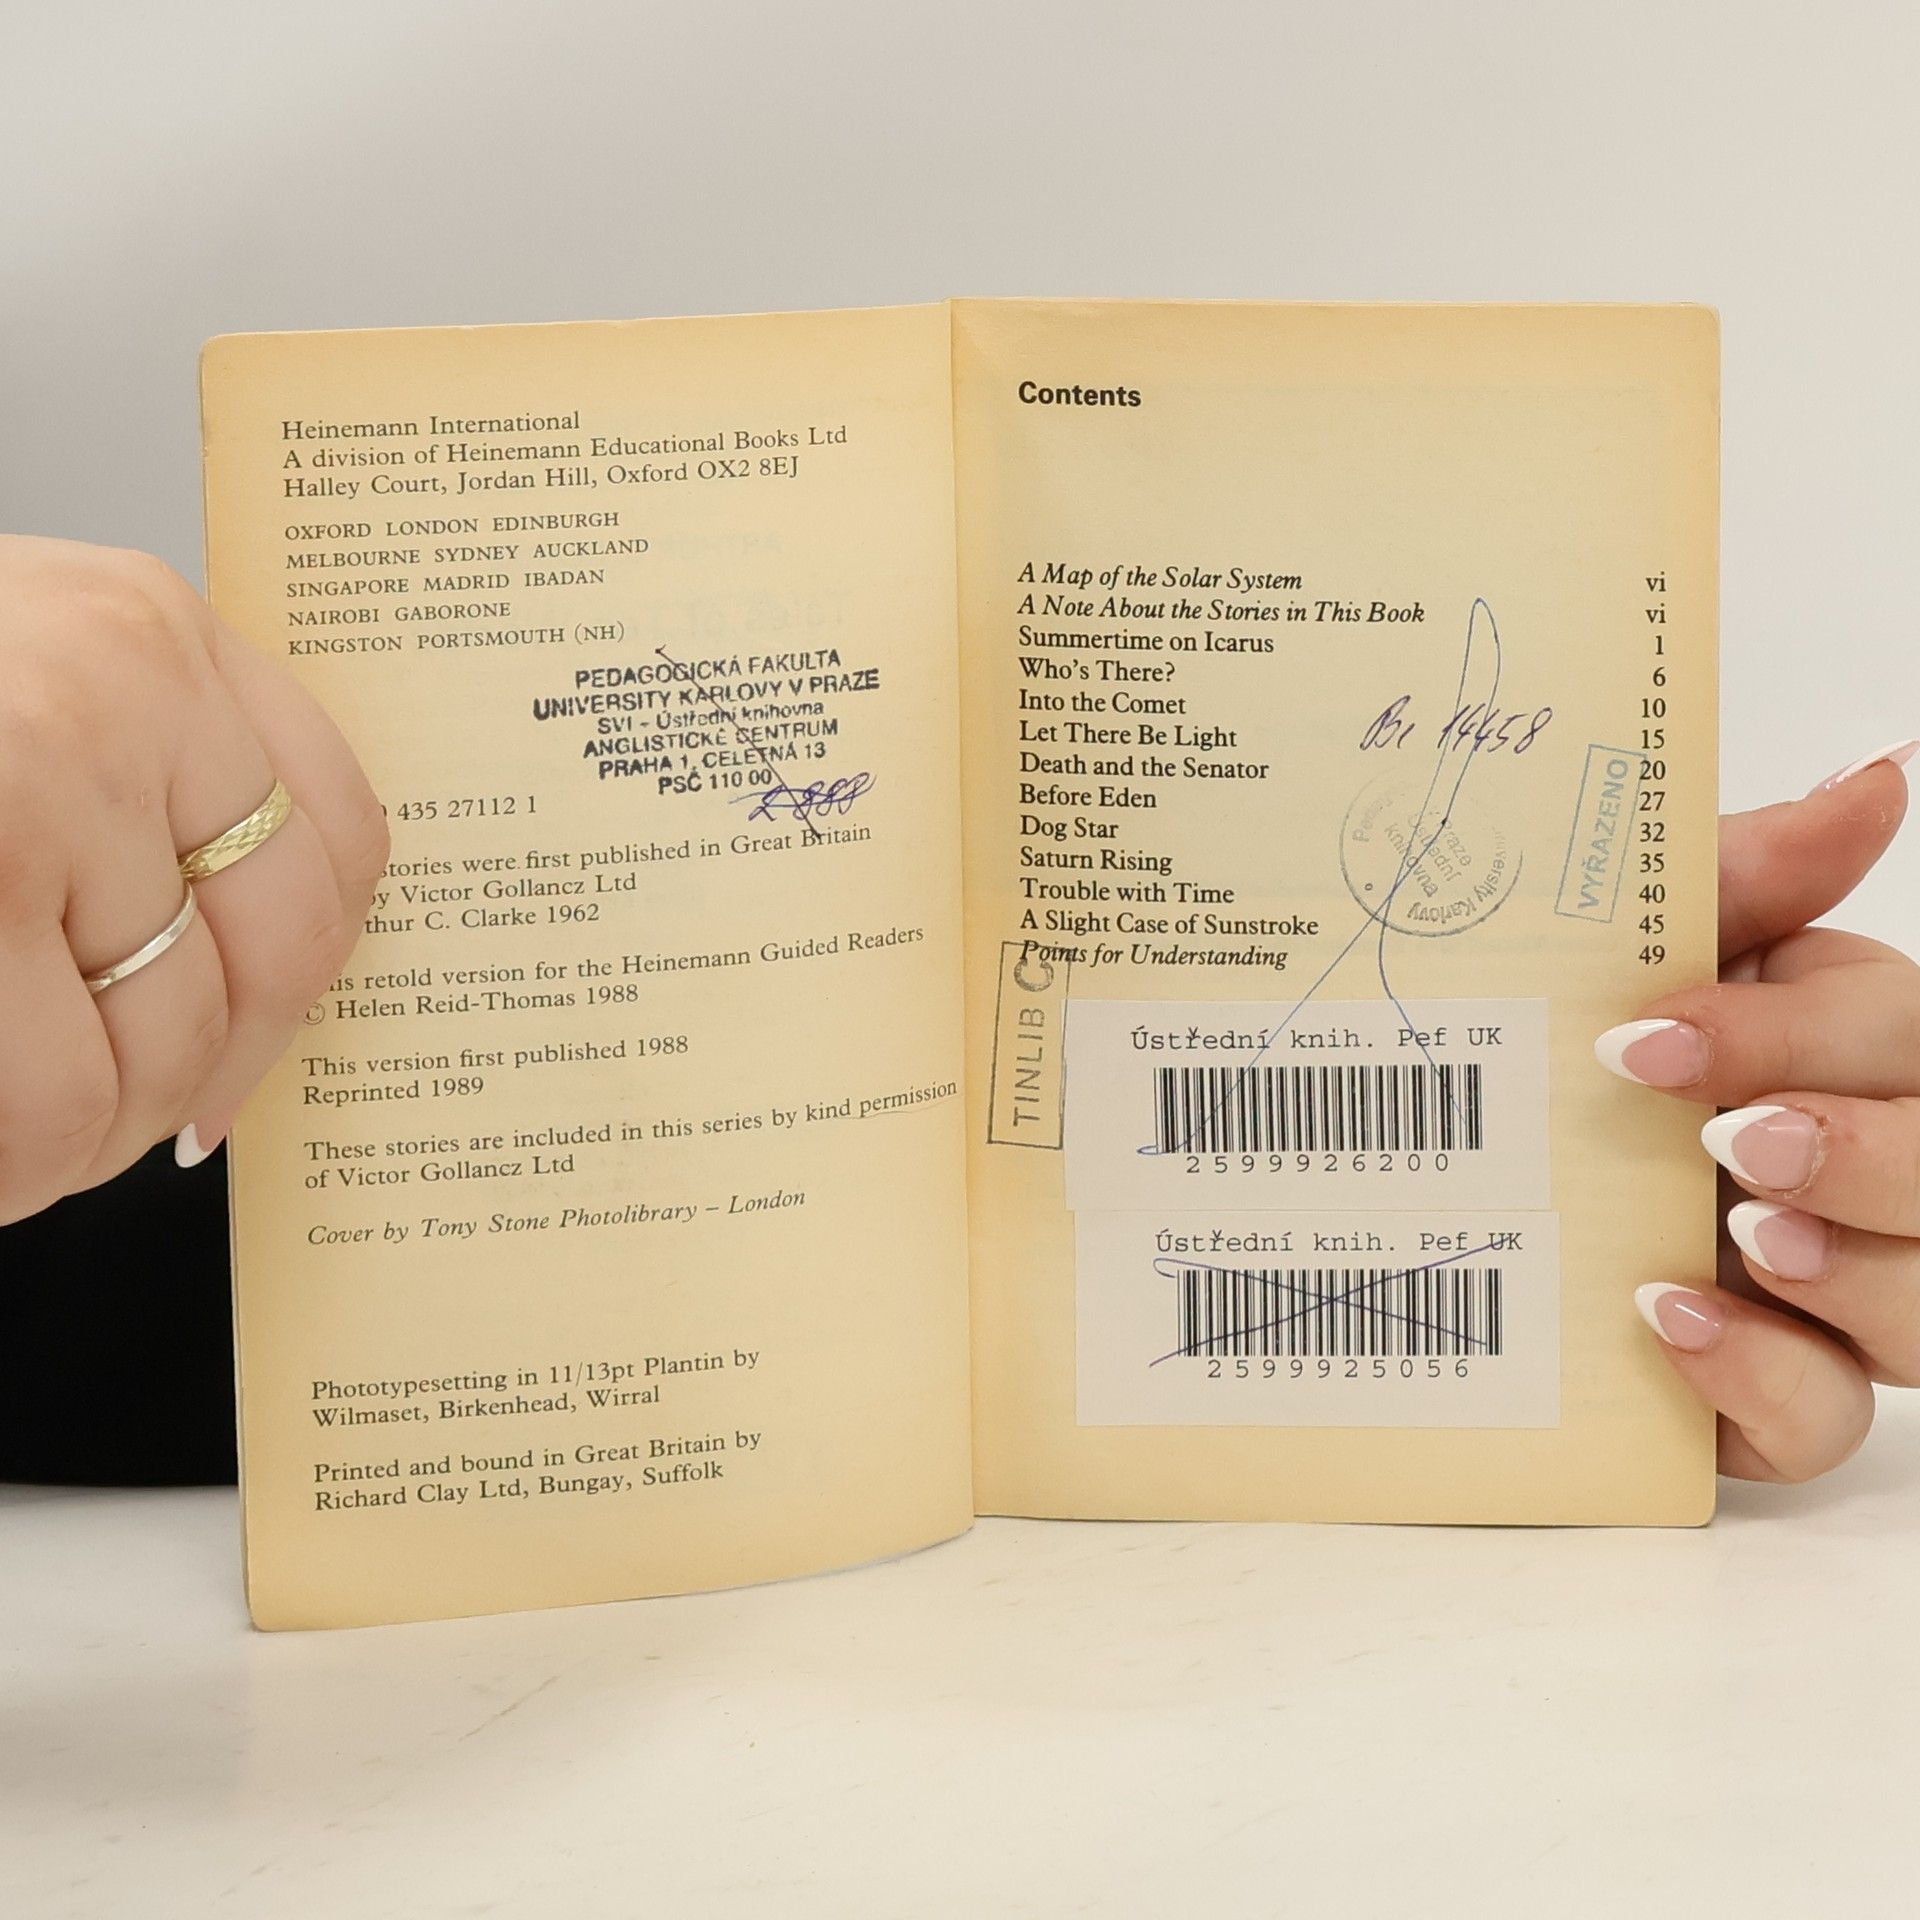 Heinemann International
A division of Heinemann Educational Books Ltd
Halley Court, Jordan Hill, Oxford OX2 8EJ
OXFORD LONDON EDINBURGH
MELBOURNE SYDNEY AUCKLAND
SINGAPORE MADRID IBADAN
NAIROBI GABORONE
KINGSTON PORTSMOUTH (NH)
PEDAGOGICKÁ FAKULTA
UNIVERSITY KARLOVY V PRAZE
SVI - Ústřední knihovna
ANGLISTICKÉ CENTRUM
PRAHA 1, CELETNÁ 13
PSČ 110 00
435 27112 1
stories were first published in Great Britain
by Victor Gollancz Ltd
thur C. Clarke 1962
is retold version for the Heinemann Guided Readers
© Helen Reid-Thomas 1988
This version first published 1988
Reprinted 1989
These stories are included in this series by kind permission
of Victor Gollancz Ltd
Cover by Tony Stone Photolibrary – London
Phototypesetting in 11/13pt Plantin by
Wilmaset, Birkenhead, Wirral
Printed and bound in Great Britain by
Richard Clay Ltd, Bungay, Suffolk
Contents
A Map of the Solar System vi
A Note About the Stories in This Book vi
Summertime on Icarus 1
Who's There? 6
Into the Comet 10
Let There Be Light 15
Death and the Senator 20
Before Eden 27
Dog Star 32
Saturn Rising 35
Trouble with Time 40
A Slight Case of Sunstroke 45
Points for Understanding 49
14458
VYŘAZENO
Ústřední
knihovna
Karlovy
TINLIB C
Ústřední knih. Pef UK
2599926200
Ústřední knih. Pef UK
2599925056